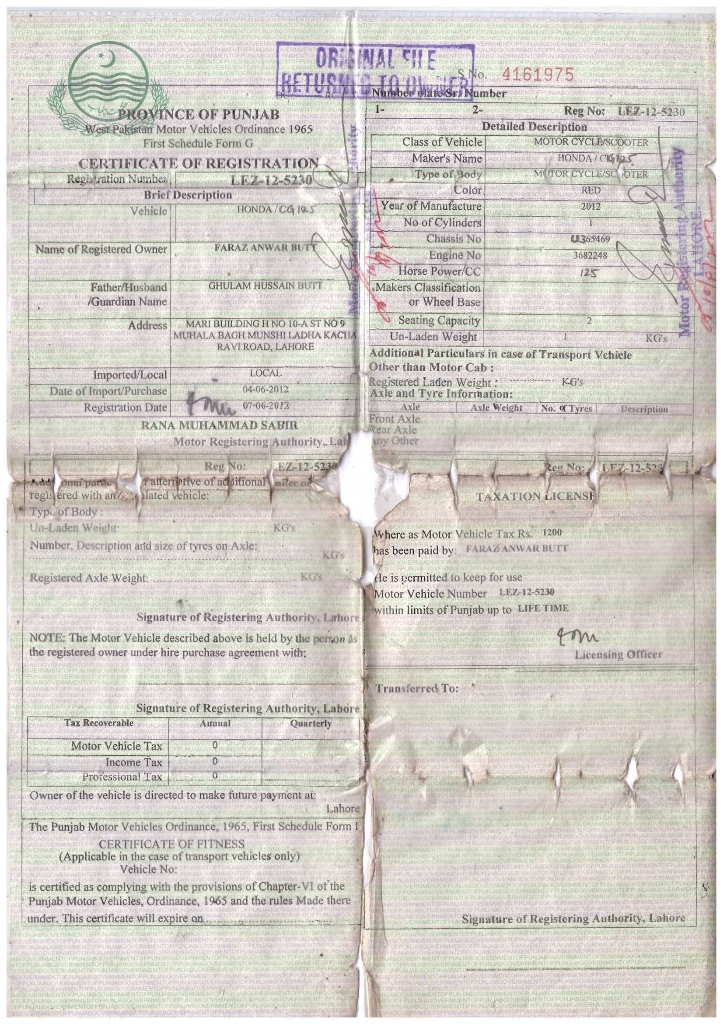 ORIGINAL FILE
RETURNED TO OWNER
S.No. 4161975
PROVINCE OF PUNJAB
West Pakistan Motor Vehicles Ordinance 1965
First Schedule Form G
CERTIFICATE OF REGISTRATION
Registration Number LEZ-12-5230
Brief Description
Vehicle HONDA / CG 125
Name of Registered Owner FARAZ ANWAR BUTT
Father/Husband GHULAM HUSSAIN BUTT
/Guardian Name
Address MARI BUILDING H NO 10-A ST NO 9
MUHALA BAGH MUNSHI LADHA KACHA
RAVI ROAD, LAHORE
Imported/Local LOCAL
Date of Import/Purchase 04-06-2012
Registration Date 07-06-2012
RANA MUHAMMAD SABIR
Motor Registering Authority, Lah
Number plate Sr. Number
1- 2- Reg No: LEZ-12-5230
Detailed Description
Class of Vehicle MOTOR CYCLE/SCOOTER
Maker's Name HONDA / CG 125
Type of Body MOTOR CYCLE/SCOOTER
Color RED
Year of Manufacture 2012
No of Cylinders 1
Chassis No
Engine No 3682248
Horse Power/CC 125
Makers Classification
or Wheel Base
Seating Capacity 2
Un-Laden Weight 1 KG's
Motor Registering Authority
LAHORE
Additional Particulars in case of Transport Vehicle
Other than Motor Cab :
Registered Laden Weight : KG's
Axle and Tyre Information:
Axle Axle Weight No. of Tyres Description
Front Axle
Rear Axle
Any Other
Reg No: LEZ-12-5230
registered with an
Type of Body :
Un-Laden Weight: KG's
Number, Description and size of tyres on Axle:
KG's
Registered Axle Weight: KG's
Signature of Registering Authority, Lahore
NOTE: The Motor Vehicle described above is held by the person as
the registered owner under hire purchase agreement with;
Signature of Registering Authority, Lahore
Tax Recoverable Annual Quarterly
Motor Vehicle Tax 0
Income Tax 0
Professional Tax 0
Owner of the vehicle is directed to make future payment at:
Lahore
The Punjab Motor Vehicles Ordinance, 1965, First Schedule Form I
CERTIFICATE OF FITNESS
(Applicable in the case of transport vehicles only)
Vehicle No:
is certified as complying with the provisions of Chapter-VI of the
Punjab Motor Vehicles, Ordinance, 1965 and the rules Made there
under. This certificate will expire on
Reg No: LEZ-12-523
TAXATION LICENSE
Where as Motor Vehicle Tax Rs. 1200
has been paid by: FARAZ ANWAR BUTT
He is permitted to keep for use
Motor Vehicle Number LEZ-12-5230
within limits of Punjab up to LIFE TIME
Licensing Officer
Transferred To:
Signature of Registering Authority, Lahore